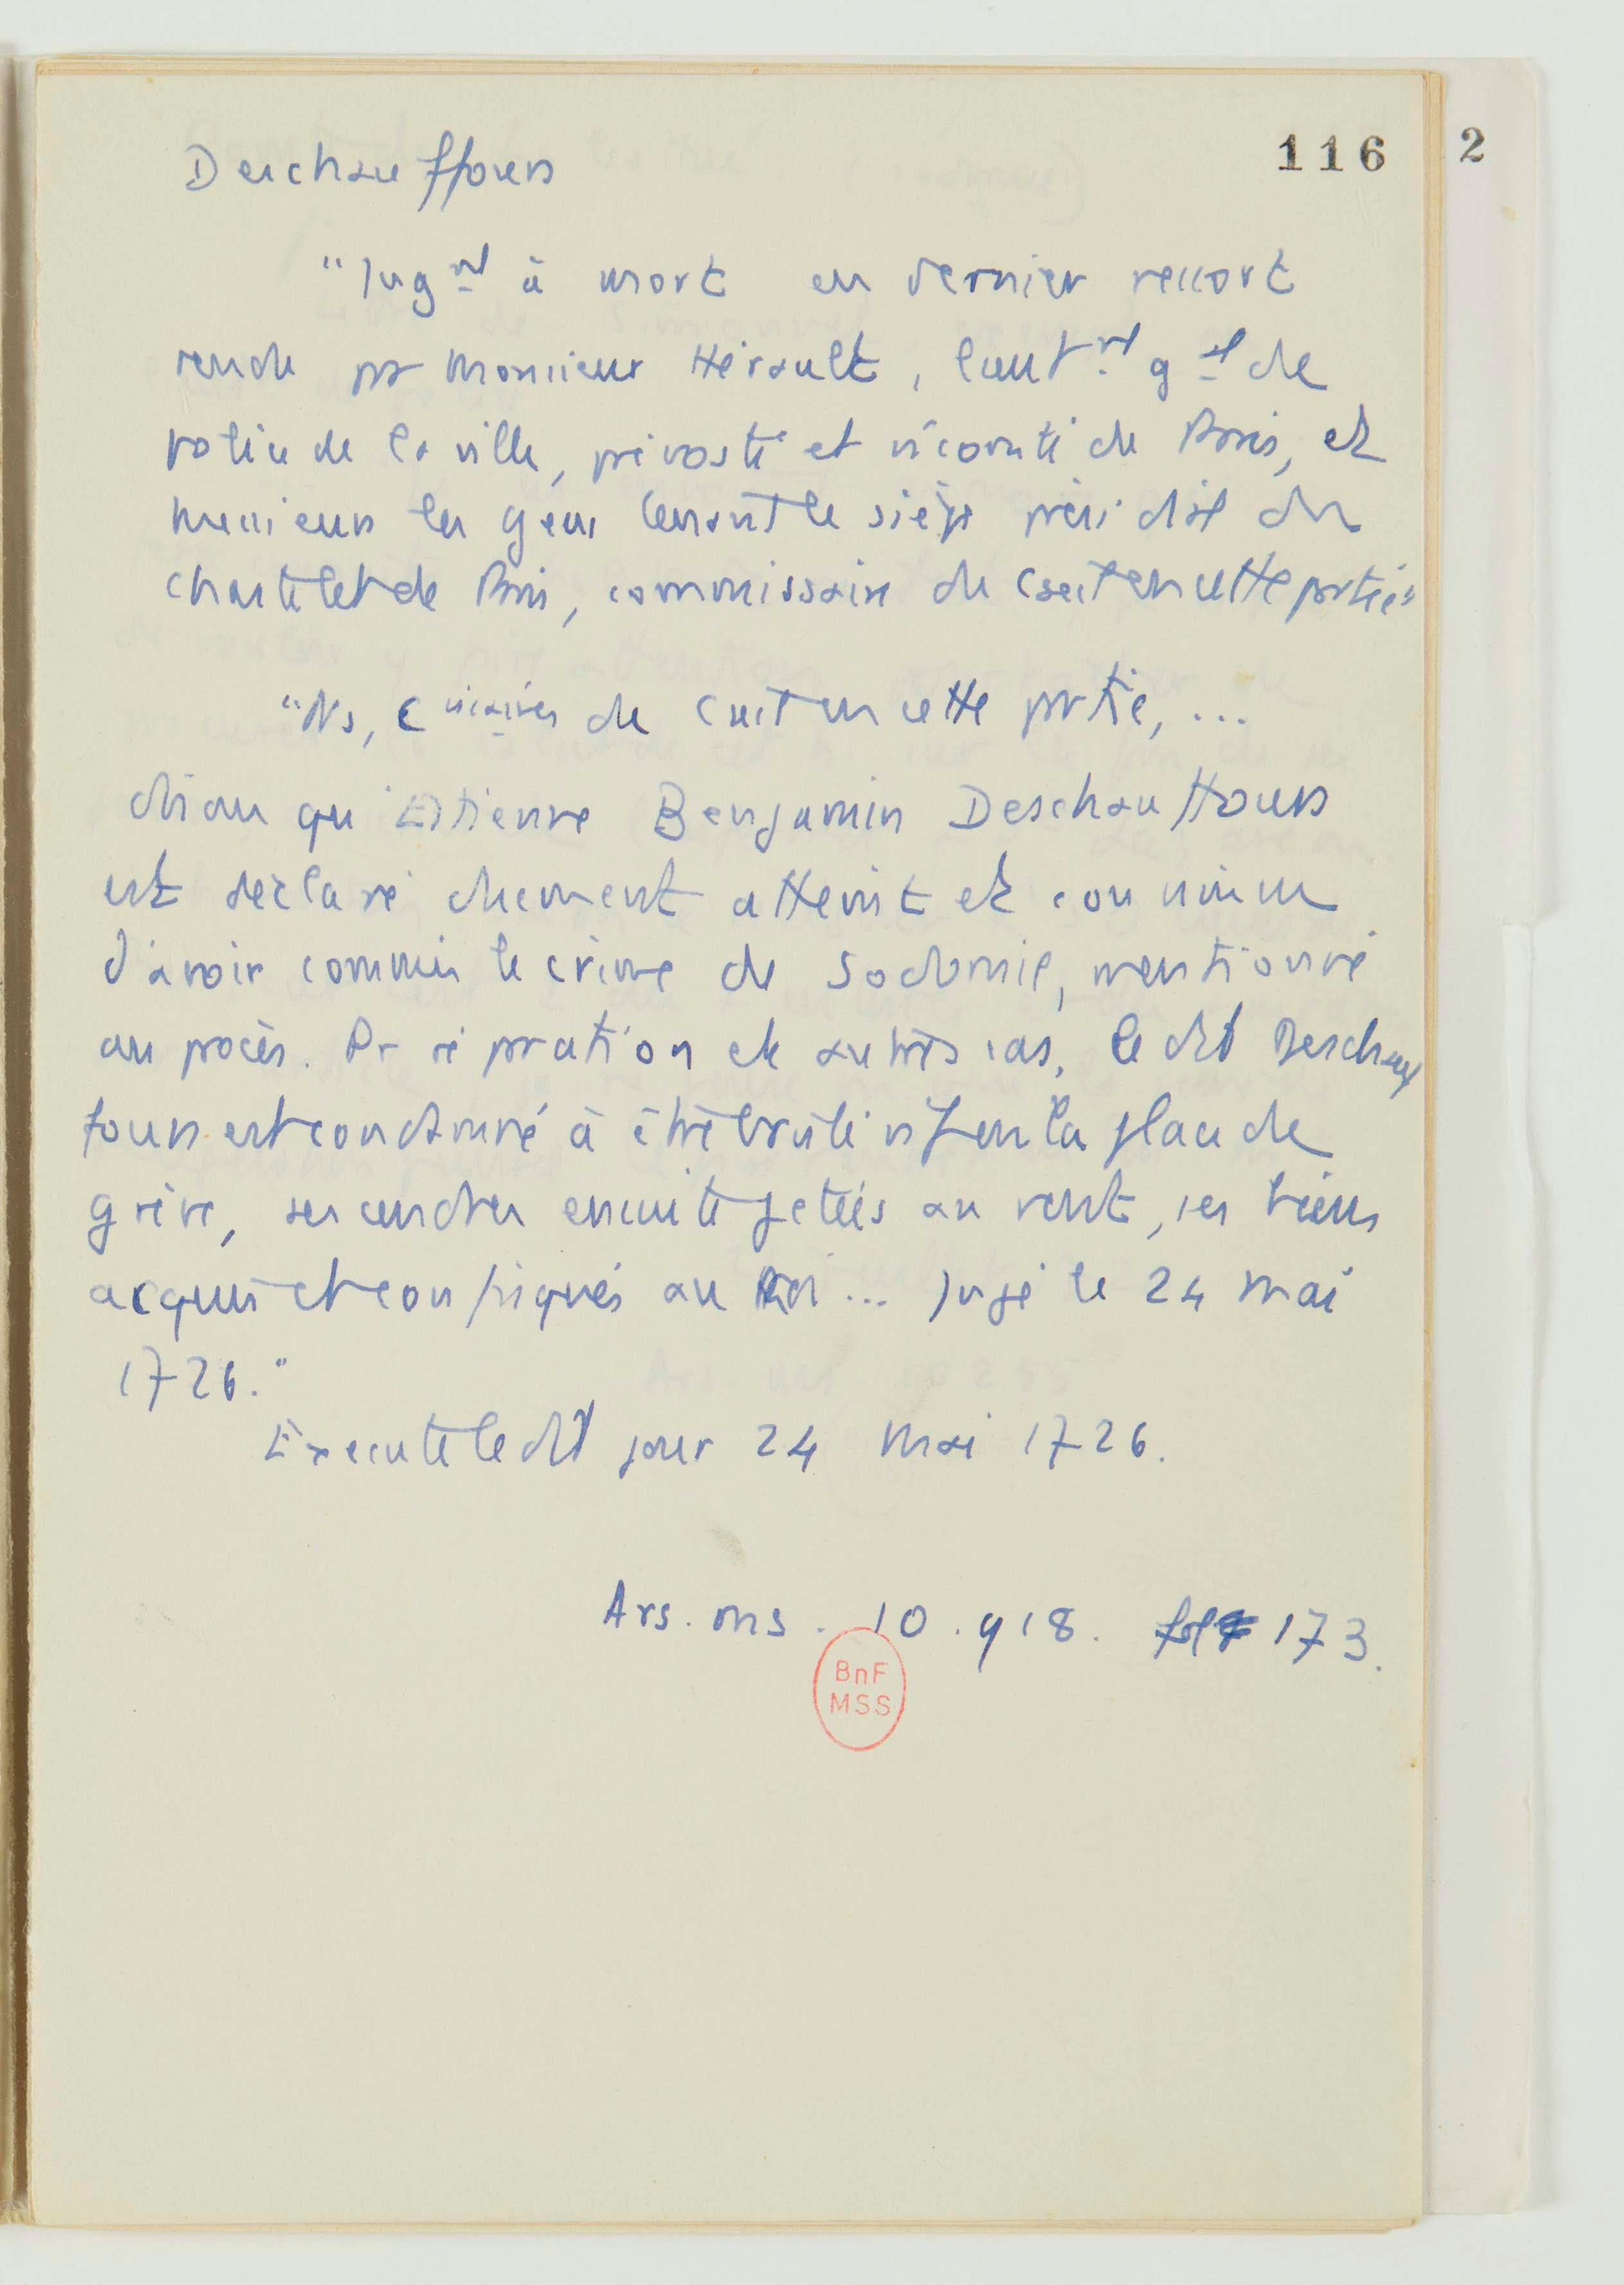 Deschauffours
116
2
"Jugnt à mort en dernier ressort
rendu pr Monsieur Hérault, lieutnt gal de
police de la ville, prévosté et vicomté de Paris, et
messieurs les gens tenant le siège présidial du
Chastelet de Paris, commissaires du Cseil en cette partie"
"Ns, Cissaires du Cseil en cette partie, ...
disons qu'Etienne Benjamin Deschauffours
est déclaré dûement atteint et convaincu
d'avoir commis le crime de sodomie, mentionné
au procès. Pr réparation et autres cas, le dit Deschauf
fours est condamné à être brûlé vif en la place de
grève, ses cendres ensuite jetées au vent, ses biens
acquis et confisqués au Roi... Jugé le 24 mai
1726."
Exécuté ledit jour 24 mai 1726.
Ars. ms. 10.918. fol 173.
BnF
MSS